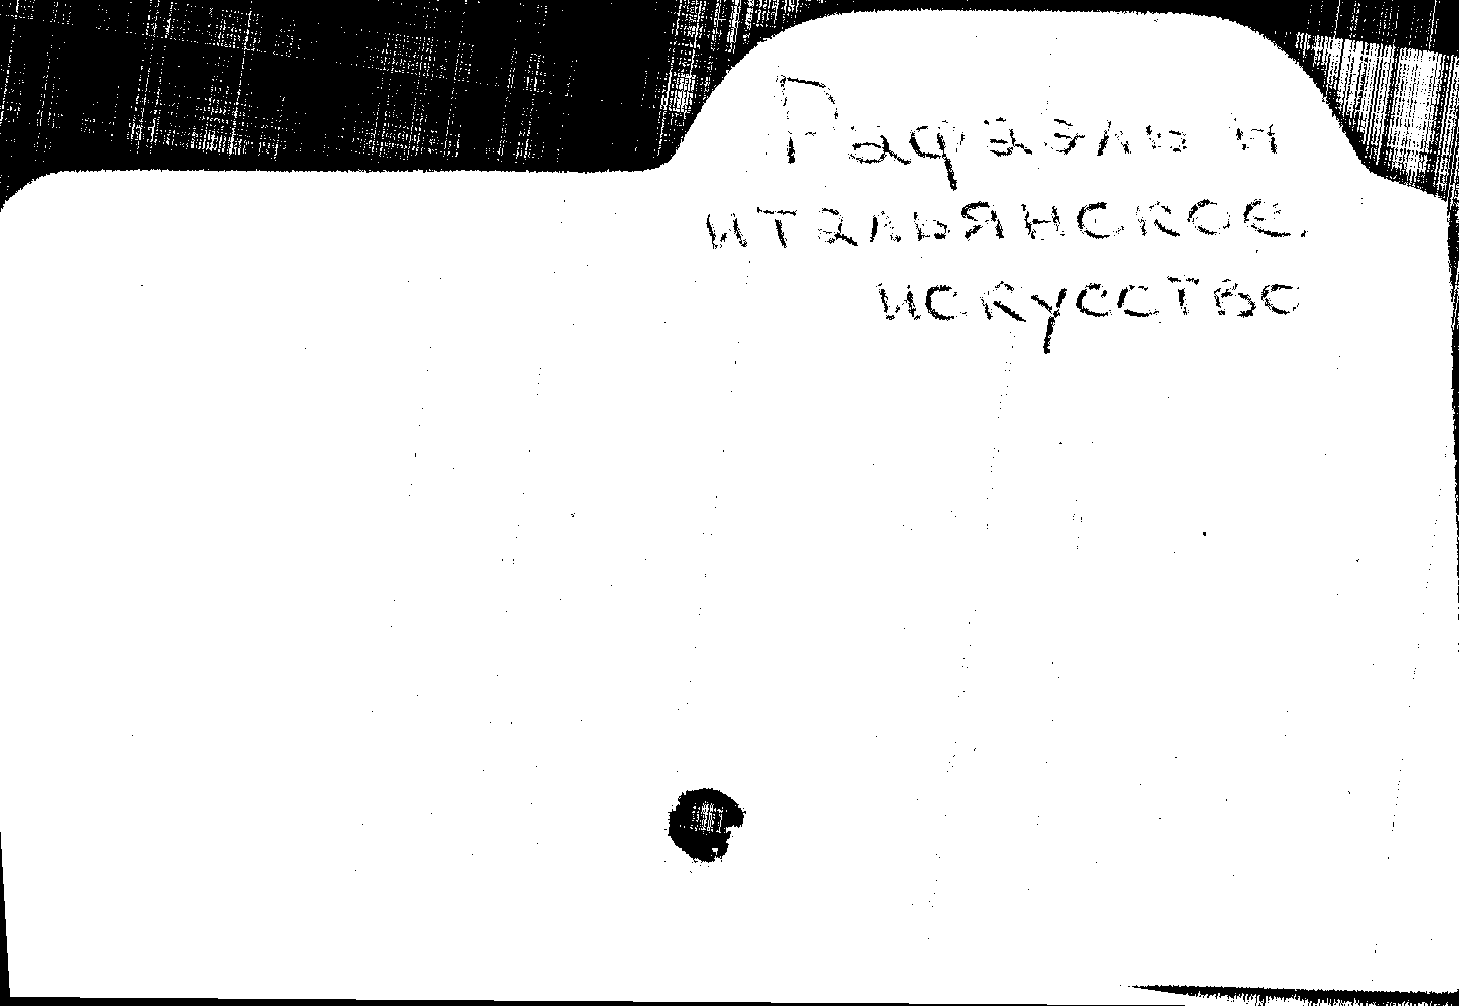 Рафаэль и
итальянское
искусство